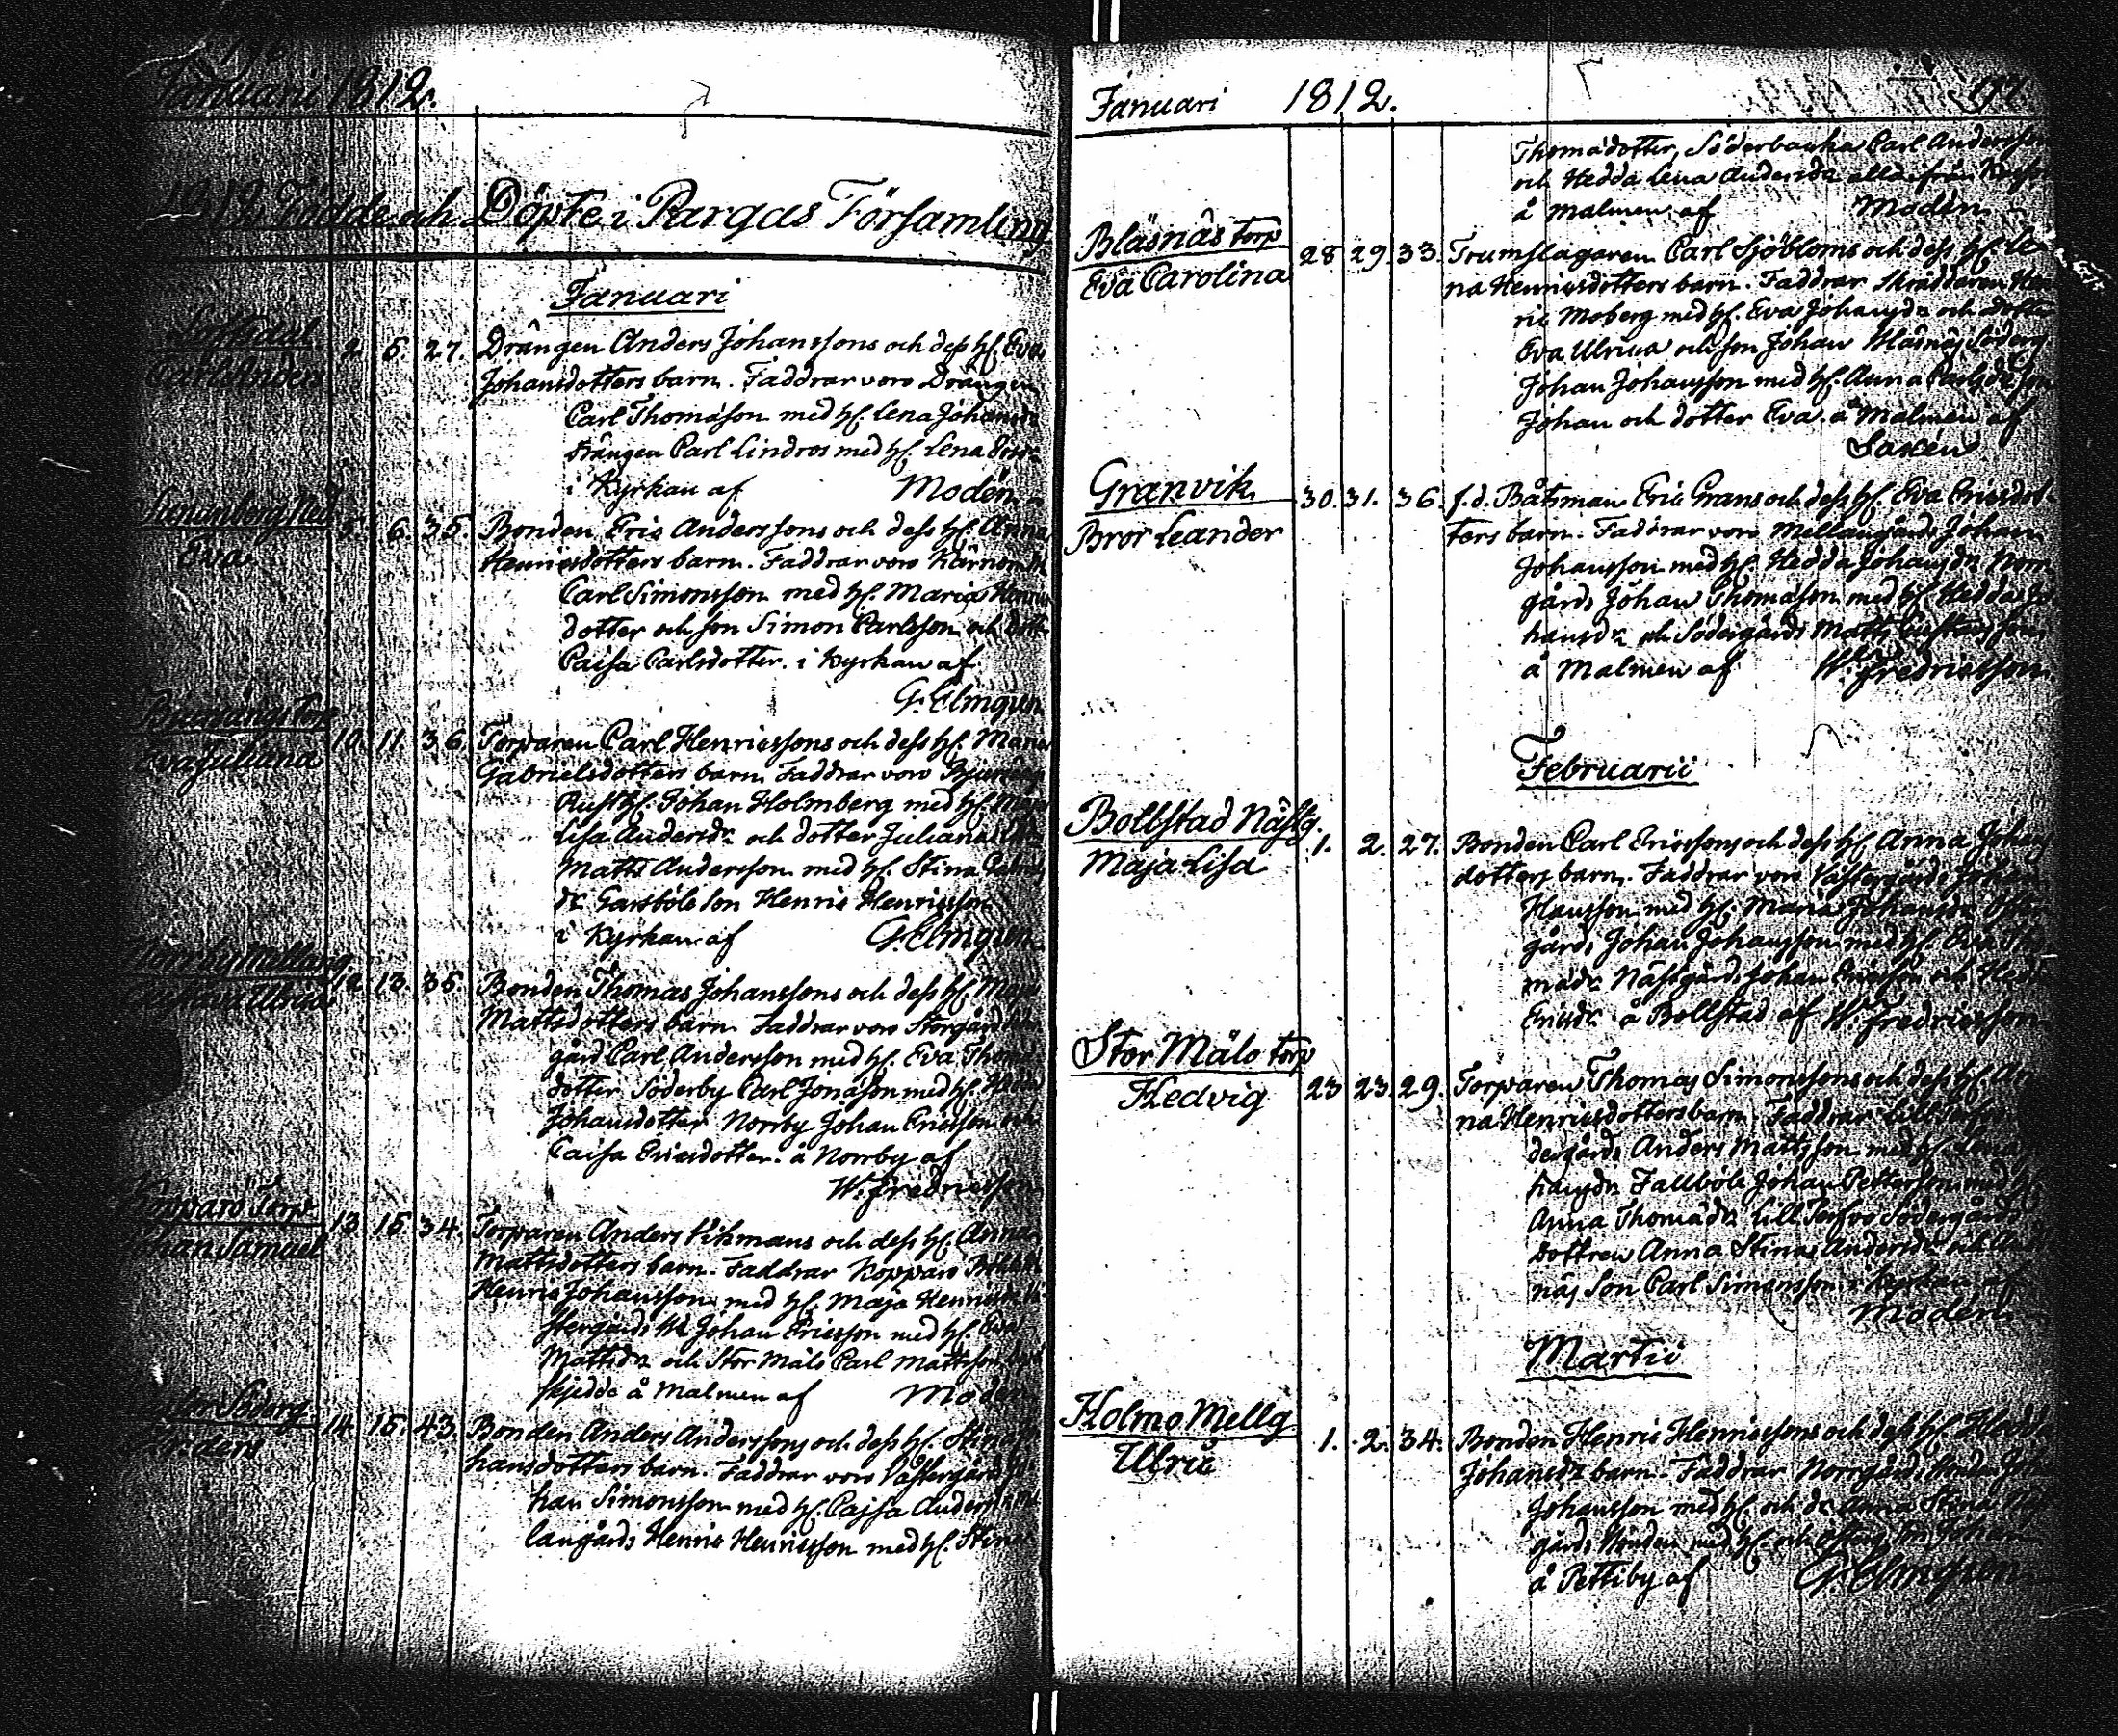 Januari 1812.
1812 Födde och Döpte i Pargas Församling
Januari
Carl Anders
2. 6. 27. Drängen Anders Johanssons och dess H. Eva
Johansdotters barn. Faddrar voro Drängen
Carl Thomasson med H. Lena Johansdr
Drängen Carl Lindros med H. Lena
i Kyrkan af Modén
Eva
5. 6. 35. Bonden Eric Anderssons och dess H. Anna
Henricsdotters barn. Faddrar voro
Carl Simonsson med H. Maria Henrics
dotter och son Simon Carlsson och dotter
Caisa Carlsdotter. i Kyrkan af
G. Elmgren
Eva Juliana
10. 11. 36. Torparen Carl Henricssons och dess H. Maria
Gabrielsdotters barn. Faddrar voro
Rusth. Johan Holmberg med H. Maja
Lisa Andersdr och dotter Juliana
Matts Andersson med H. Stina
dr Garsböle son Henric Henricsson
i Kyrkan af G. Elmgren
Ulrica
12. 13. 36. Bonden Thomas Johanssons och dess H. Maja
Mattsdotters barn. Faddrar voro Storgård
gård Carl Andersson med H. Eva Thomas
dotter Söderby Carl Jonasson med H. Hedda
Johansdotter Norrby Johan Ericsson och
Caisa Ericsdotter. å Norrby af
W. Fredricsson
Koppars Torp
Johan Samuel
13. 15. 34. Torparen Anders Vikmans och dess H. Anna
Mattsdotters barn. Faddrar Koppars
Henric Johansson med H. Maja Henricsdr
stergårds Johan Ericsson med H. Eva
Mattsdr och Stor Mälo Carl Mattsson
skjedde å Malmen af Modén
Söderg.
Anders
14. 15. 43. Bonden Anders Anderssons och dess H. Stina
hansdotters barn. Faddrar voro Västergårds
han Simonsson med H. Cajsa Andersdr
langårds Henric Henricsson med H. Stina
Januari 1812.
Thomasdotter, Söderbacka Carl Andersson
och Hedda Lena Andersdr alla ifrån
å Malmen af Modén
Bläsnäs torp
Eva Carolina
28 29. 33. Trumslagaren Carl Sjöbloms och dess H. Le
na Henricsdotters barn. Faddrar Skräddaren Hen
ric Moberg med H. Eva Johansdr och dotter
Eva Ulrica och son Johan Bläsnäs Söderg
Johan Johansson med H. Anna Carlsdr son
Johan och dotter Eva. å Malmen af
Saxén
Granvik
Bror Leander
30. 31. 36. f.d. Båtsman Eric Grans och dess H. Eva Ericsdot
ters barn. Faddrar voro Mellangårds Johan
Johansson med H. Hedda Johansdr Norr
gårds Johan Thomasson med H. Hedda Jo
hansdr och Södergårds Matts Gustafsson
å Malmen af W. Fredricsson
Februarii
Bollstad Näsg.
Maja Lisa
1. 2. 27. Bonden Carl Ericssons och dess H. Anna Johans
dotters barn. Faddrar voro Västergårds Johan
Hansson med H. Maria Johansdr
gårds Johan Johansson med H. Eva Tho
masdr Näsgårds Johan Ericsson och Hedda
Ericsdr å Bollstad af W. Fredricsson
Stor Mälo torp
Hedvig
23 23. 29. Torparen Thomas Simonssons och dess H. An
na Henricsdotters barn. Faddrar Lill
dergårds Anders Mattsson med H. Lena
hansdr Fallböle Johan Pettersson med H.
Anna Thomasdr Lill Södergårds
dottren Anna Stina Andersdr och
näs son Carl Simonsson i Kyrkan af
Modén
Martii
Holmo Mellg
Ulric
1. 2. 34. Bonden Henric Henricssons och dess H. Hedda
Johansdr barn. Faddrar Norrgårds
Johansson med H. och dr Anna Stina
gårds med H. och son Johan
å Pettiby af G. Elmgren